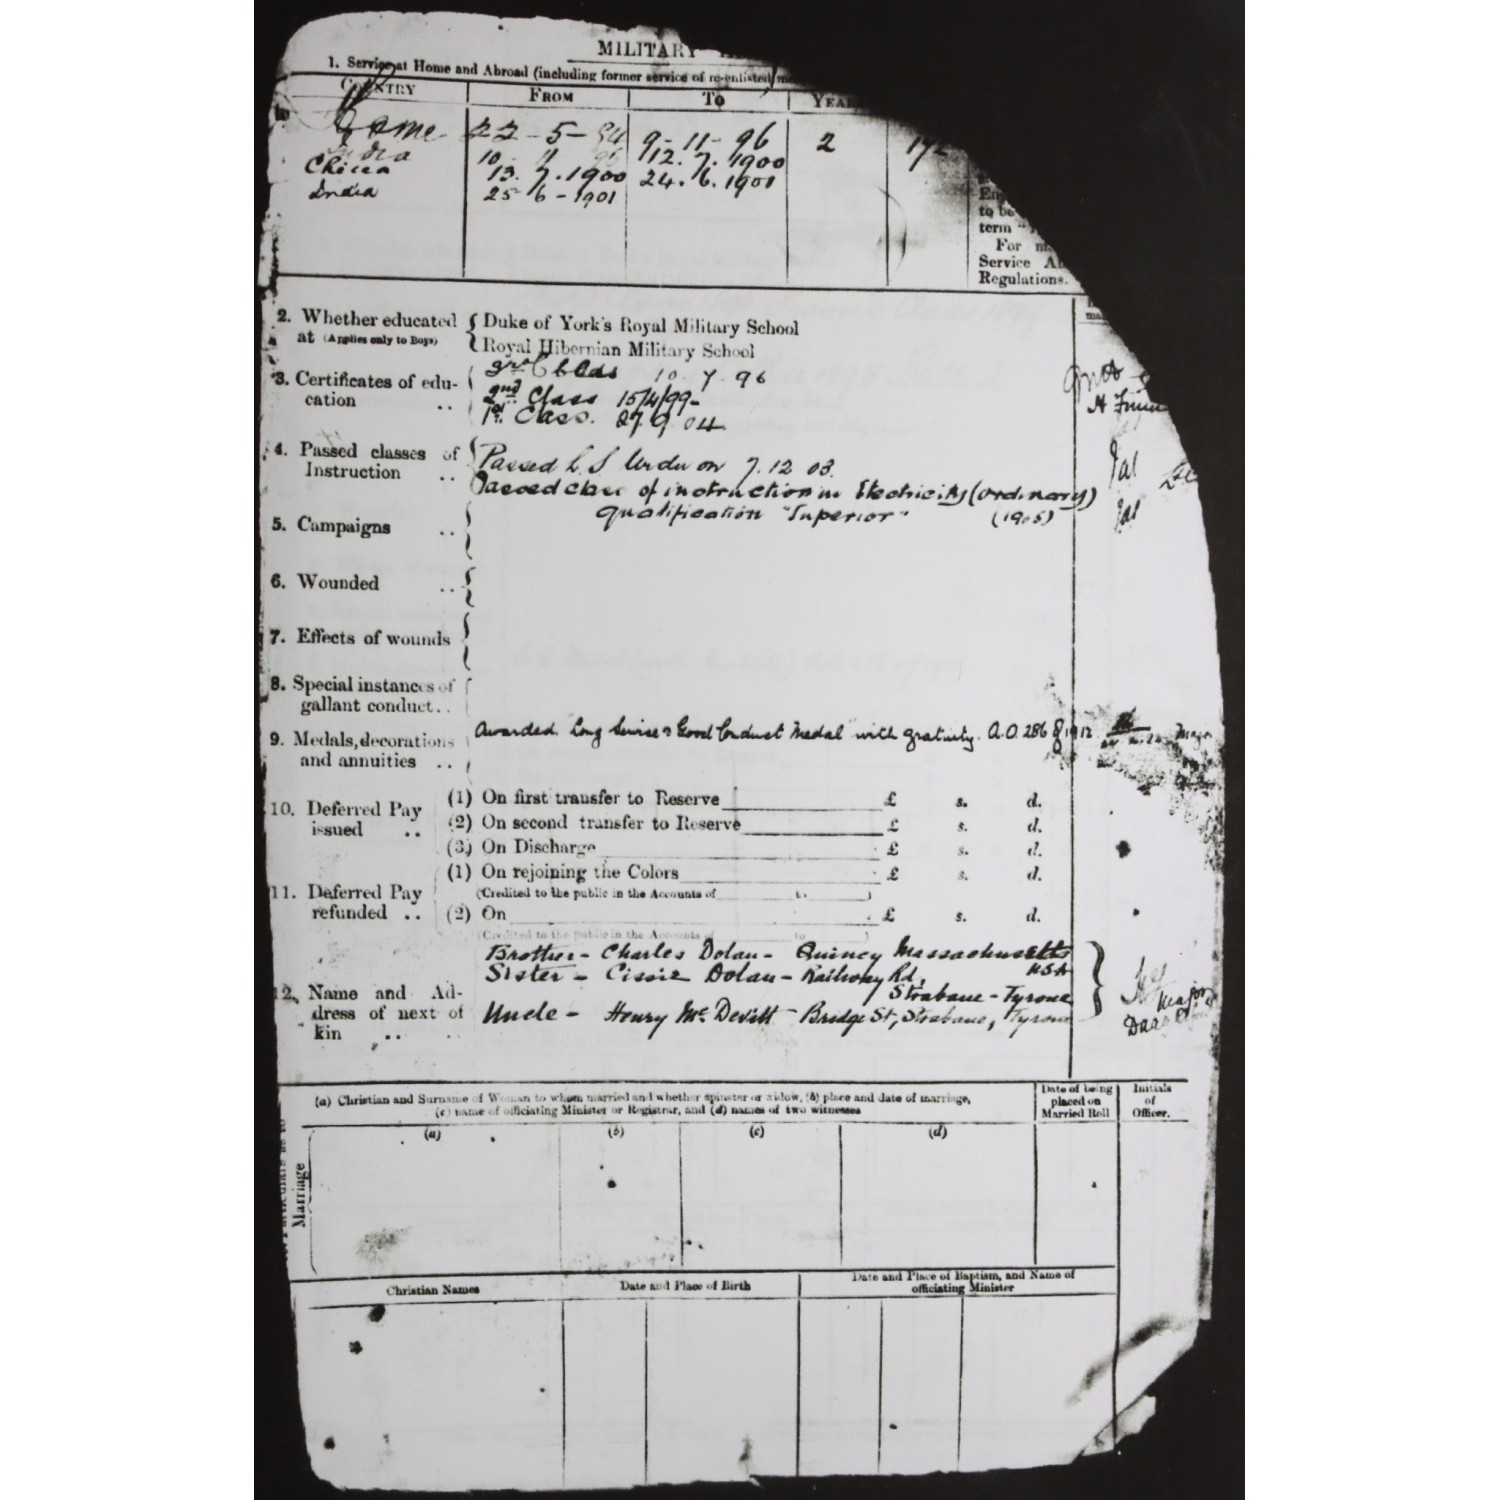 MILITARY
1. Service at Home and Abroad (including former service of re-enlisted
COUNTRY FROM TO YEAR
Home 22-5-94 9-11-96 2 172
India 10 11 96 12.7.1900
China 13.7.1900 24.6.1901
India 25-6-1901
to be
term "
For
Service
Regulations.
2. Whether educated at (Applies only to Boys) { Duke of York's Royal Military School
Royal Hibernian Military School
3. Certificates of education .. 3rd Class 10.7.96
2nd Class 15/4/99-
1st Class. 27.9.04
4. Passed classes of Instruction .. Passed L S Urdu on 7.12.03.
Passed class of instruction in Electricity (ordinary)
qualification "Superior" (1905)
5. Campaigns ..
6. Wounded ..
7. Effects of wounds
8. Special instances of gallant conduct..
9. Medals, decorations and annuities .. Awarded Long Service & Good Conduct Medal with gratuity. A.O. 286 of 1912 Major
10. Deferred Pay issued .. (1) On first transfer to Reserve £ s. d.
(2) On second transfer to Reserve £ s. d.
(3) On Discharge £ s. d.
11. Deferred Pay refunded .. (1) On rejoining the Colors £ s. d.
(Credited to the public in the Accounts of )
(2) On £ s. d.
(Credited to the public in the Accounts of to )
12. Name and Address of next of kin .. Brother - Charles Dolan - Quincy Massachusetts USA
Sister - Cissie Dolan - Railway Rd, Strabane - Tyrone
Uncle - Henry McDevitt - Bridge St, Strabane, Tyrone
Major
(a) Christian and Surname of Woman to whom married and whether spinster or widow, (b) place and date of marriage,
(c) name of officiating Minister or Registrar, and (d) names of two witnesses
Date of being placed on Married Roll
Initials of Officer.
(a) (b) (c) (d)
Particulars as to Marriage
Christian Names Date and Place of Birth Date and Place of Baptism, and Name of officiating Minister